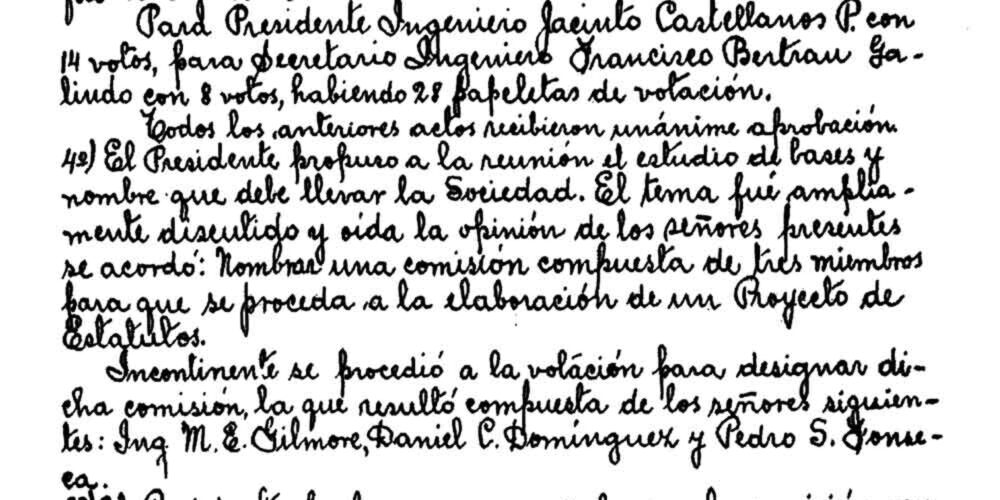 Para Presidente Ingeniero Jacinto Castellanos P. con
14 votos, para Secretario Ingeniero Francisco Bertrau Ga-
lindo con 8 votos, habiendo 28 papeletas de votación.
Todos los anteriores actos recibieron unánime aprobación.
4º) El Presidente propuso a la reunión el estudio de bases y
nombre que debe llevar la Sociedad. El tema fué amplia-
mente discutido y oída la opinión de los señores presentes
se acordó: Nombrar una comisión compuesta de tres miembros
para que se proceda a la elaboración de un Proyecto de
Estatutos.
Incontinente se procedió a la votación para designar di-
cha comisión, la que resultó compuesta de los señores siguien-
tes: Ing M. E. Gilmore, Daniel C. Domínguez y Pedro S. Fonse-
ca.